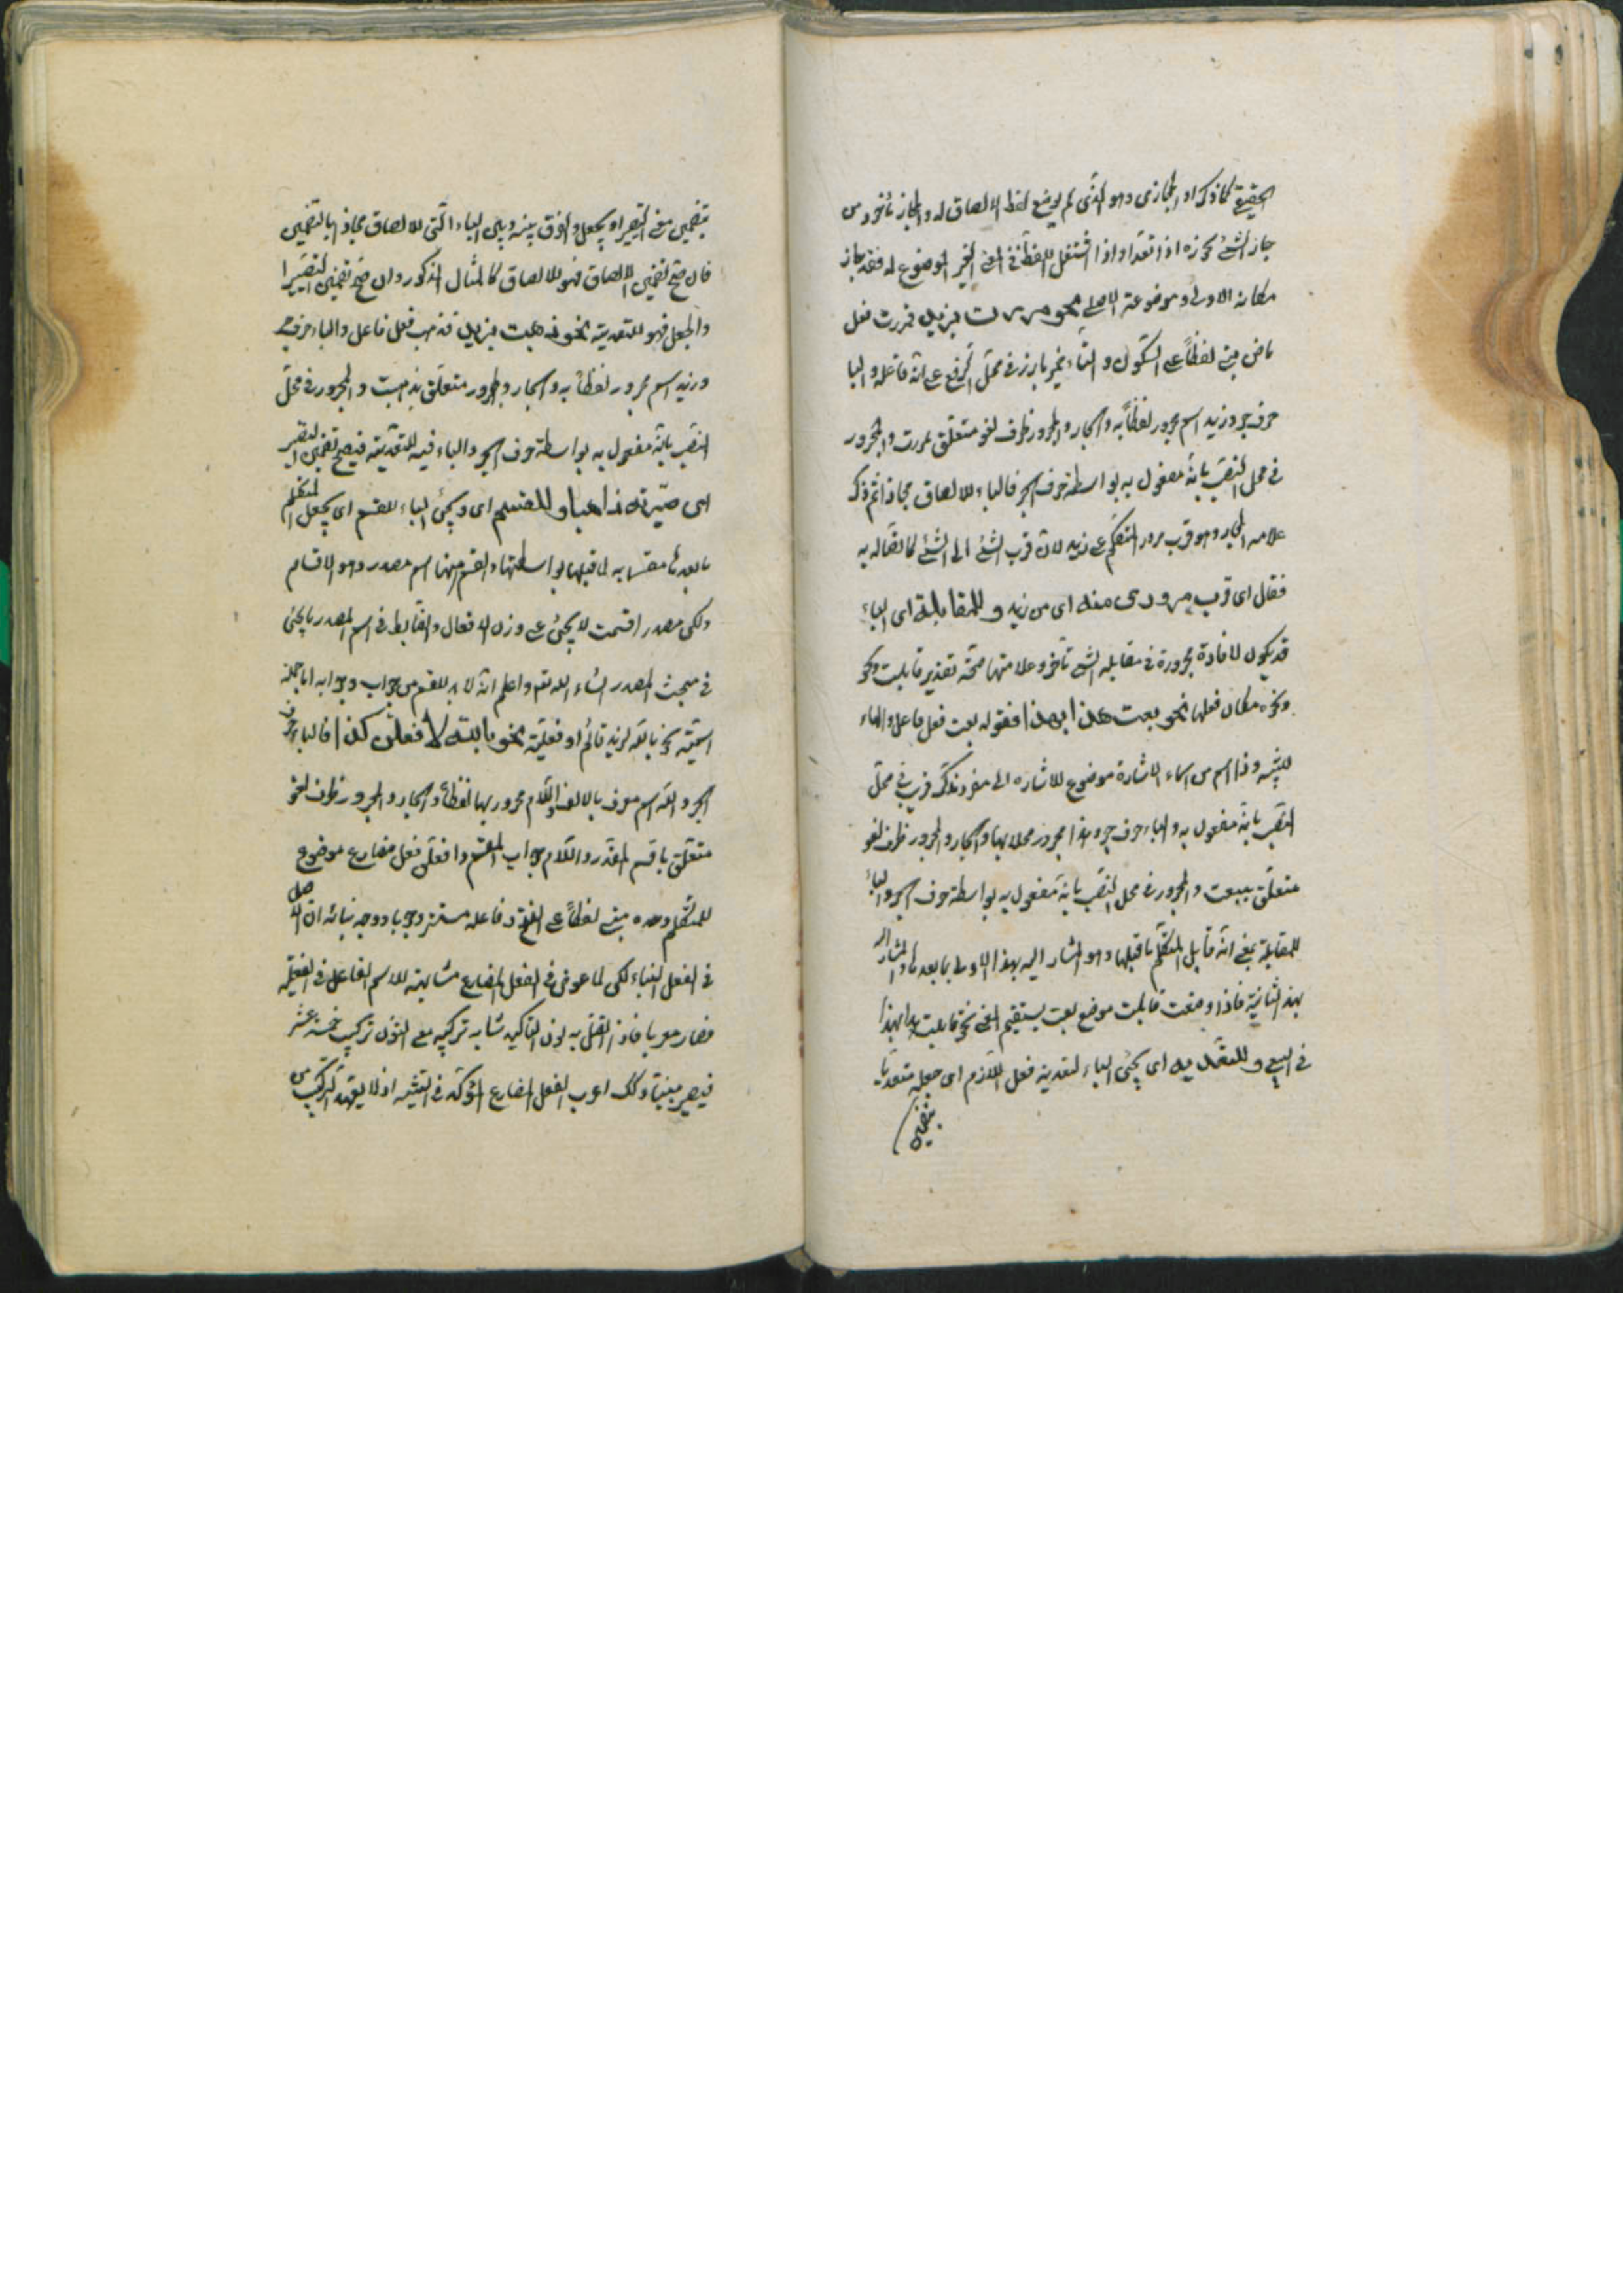 الحقيقى كما ذكر او المجازى وهو الذى لم يوضع لفظ الالصاق له والمجاز مأخوذ من
جاز الشئ يجوزه اذا تعداه واذا استعمل اللفظ فى المعنى الغير الموضوع له فقد جاز
مكانه الاولى وموضوعه الاصلى نحو مررت بزيد فمررت فعل
ماض مبنى لفظاً على السكون والتاء ضمير بارز فى محل الرفع على انه فاعله والبا
حرف جر وزيد اسم مجرور لفظاً به والجار والمجرور ظرف لغو متعلق بمررت والمجرور
فى محل النصب بانه مفعول به بواسطة حرف الجر فالباء للالصاق مجازا ثم ذكر
علامة المجاز وهو قرب مرور المتكلم على زيد لان قرب الشئ الى الشئ كاتصاله به
فقال اى قرب مرورى منه اى من زيد وللمقابلة اى الباء
قد يكون لافادة مجروره فى مقابلة الشئ تأخر وعلامتها صحة تقدير قابلت ونحو
ونحوه مكان فعلها نحو بعت هذا بهذا فقوله بعت فعل فاعل والهاء
للتنبيه وذا اسم من اسماء الاشارة موضوع للاشاره الى مفرد مذكر قريب فى محل
النصب بانه مفعول به والباء حرف جر وهذا مجرور محلا بها والجار والمجرور ظرف لغو
متعلق ببعت والمجرور فى محل النصب بانه مفعول به بواسطة حرف الجر والباء
للمقابلة بمعنى انه قابل المتكلم ما قبلها وهو المشار اليه بهذا الاولى بما بعدها والمشار اليه
بهذا الثانية فاذا وضعت قابلت موضع بعت يستقيم المعنى نحو قابلت هذا بهذا
فى البيع وللتعدية اى يجئ الباء لتعدية فعل اللازم اى جعله متعديا
بتضمين
بتضمين معنى التصيير او يجعل والفرق بينه وبين الباء التى للالصاق مجازا بالتضمين
فان صح تضمين الالصاق فهو للالصاق كالمثال المذكور وان صح تضمين التصيير
والجعل فهو للتعدية نحو ذهبت بزيد فذهب فعل فاعل والباء حرف جر
وزيد اسم مجرور لفظاً به والجار والمجرور متعلق بذهبت والمجرور فى محل
النصب بانه مفعول به بواسطة حرف الجر والباء فيه للتعدية فيصح تضمين التصيير
اى صيّرته ذاهبا وللقسم اى ويجئ الباء للقسم اى يجعل المتكلم
ما بعدها مقسما به لما قبلها بواسطتها والقسم ههنا اسم مصدر وهو الاقسام
ولكن مصدر اقسمت لا يجئ على وزن الافعال والضابط فى اسم المصدر ما يجئ
فى مبحث المصدر انشاء الله تعم واعلم انه لابد للقسم من جواب وجوابه اما جملة
اسمية نحو بالله لزيد قائم او فعلية نحو بالله لأفعلن كذا فالباء حرف
الجر والله اسم معرف بالالف واللام مجرور بها لفظاً والجار والمجرور ظرف لغو
متعلق باقسم المقدر واللام جواب المقسم وافعلن فعل مضارع موضوع
للمتكلم وحده مبنى لفظاً على الفتح وفاعله مستتر وجوبا ووجه بنائه ان الاصل
فى الفعل البناء لكن لما عرض فى الفعل المضارع مشابهته للاسم الفاعل فى الفعلية
فصار معربا فاذا اتصل به نون التأكيد شابه تركيبه مع النون تركيب خمسة عشر
فيصير مبنيا وكك اعرب الفعل المضارع المؤكد فى التثنية اذ لا يعهد التركيب من